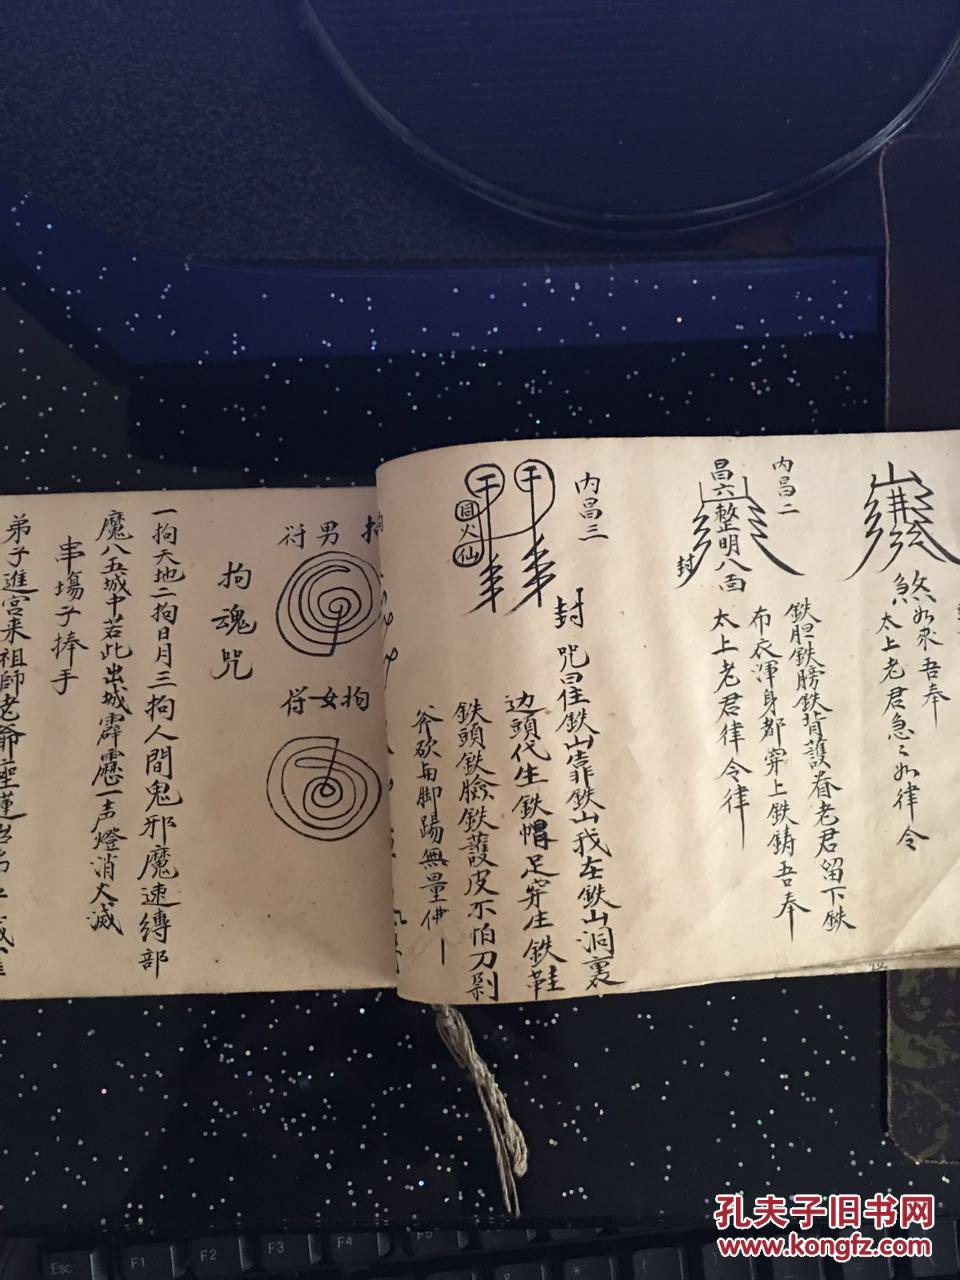 煞
如來吾奉
太上老君急〻如律令
内昌二
昌六整明八面
封
鉄胆鉄膀鉄背護眷老君留下鉄
布衣渾身都穿上鉄鋳吾奉
太上老君律令律
内昌三
封
咒曰住鉄山靠鉄山我在鉄山洞裏
边頭代生鉄帽足穿庄鉄鞋
鉄頭鉄臉鉄護皮不怕刀剁
斧砍与脚踢無量佛
男符
拘女符
拘魂咒
一拘天地二拘日月三拘人間鬼邪魔速縛部
魔八五城中若此出城霹靂一声燈消火滅
串塲子捧手
弟子進宮来祖師老爺座蓮
孔夫子旧书网
www.kongfz.com
Esc
F1
F2
F3
F4
F5